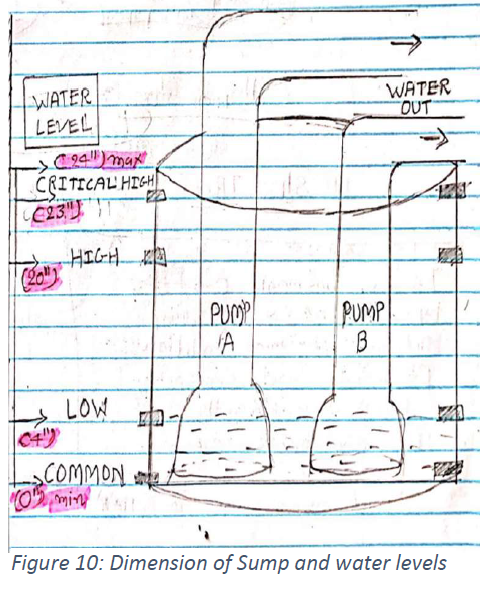 WATER
LEVEL
WATER
OUT
(24") max
CRITICAL HIGH
(23")
HIGH
(20")
PUMP
A
PUMP
B
LOW
(4")
COMMON
(0") min
Figure 10: Dimension of Sump and water levels